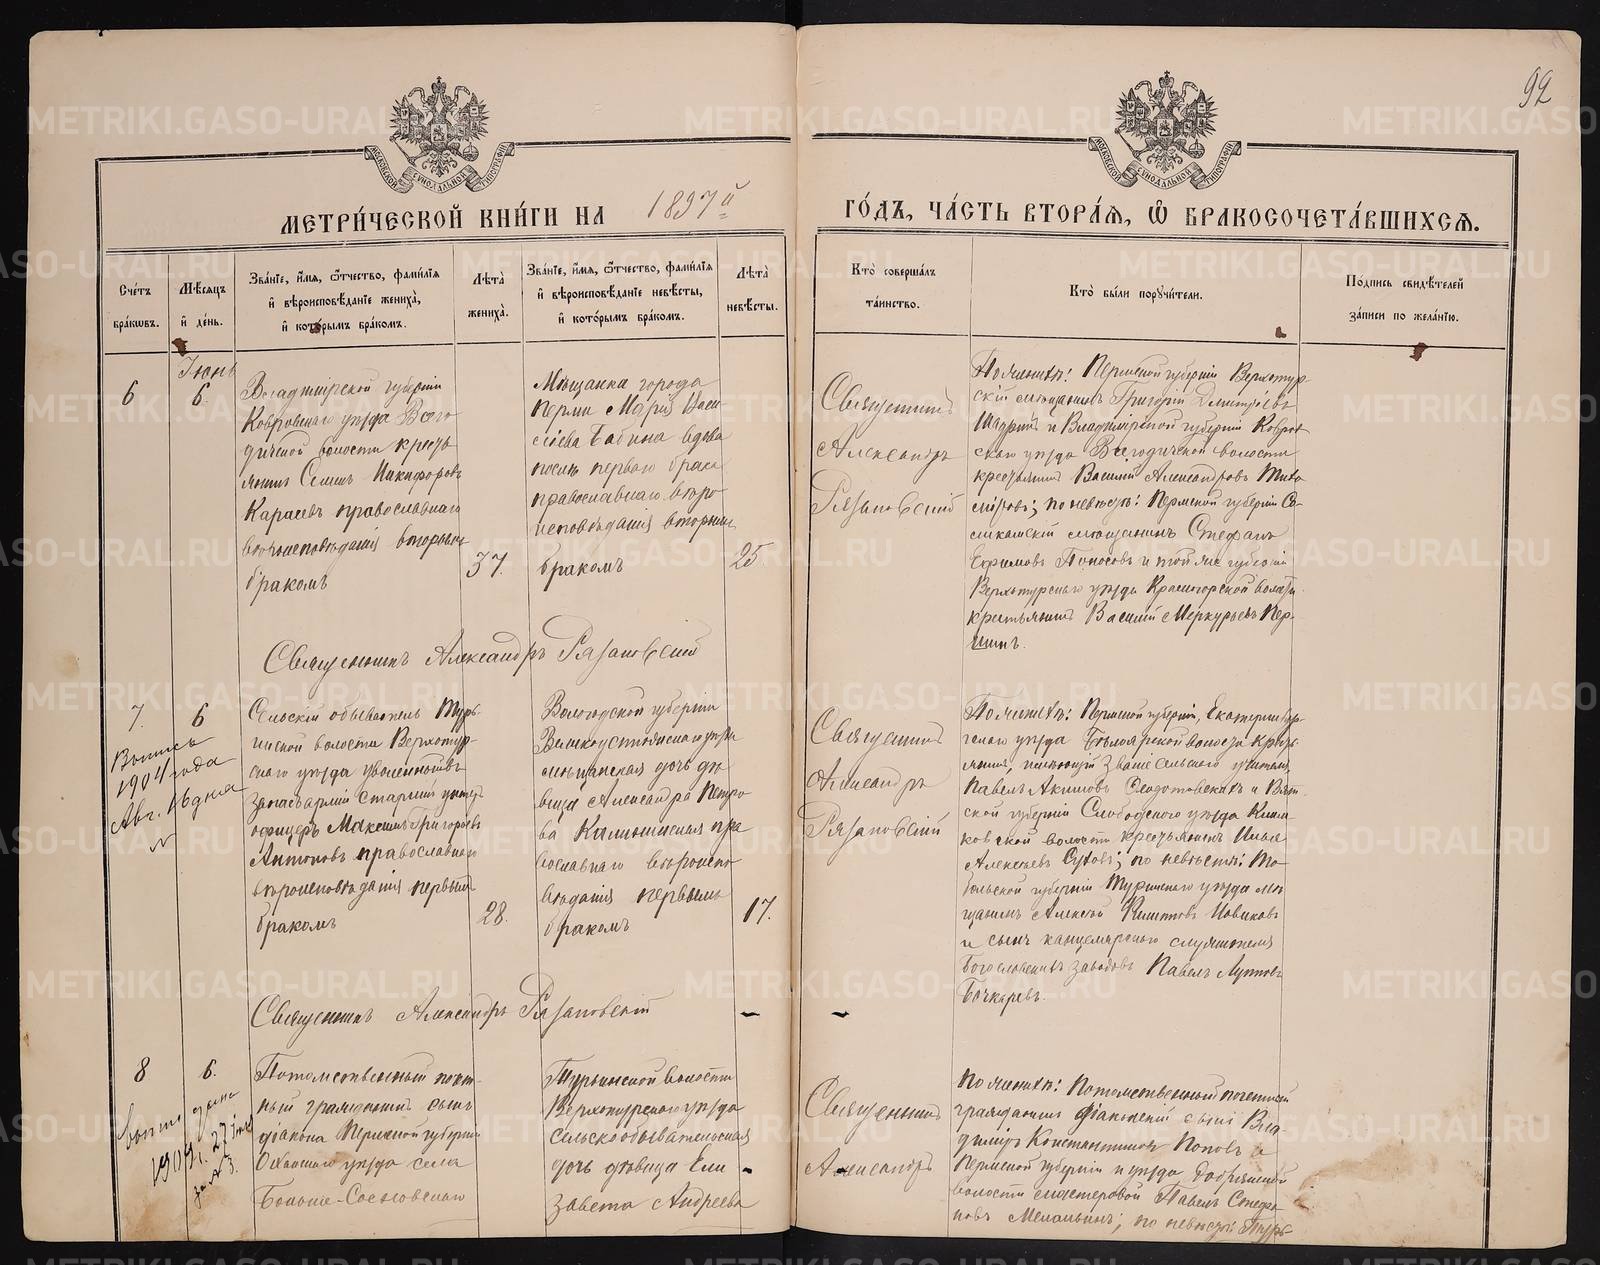 92
МЕТРИ́ЧЕСКОЙ КНИ́ГИ НА 1897й
ГО́ДЪ, ЧА́СТЬ ВТОРА́Я, Ѡ҆ БРАКОСОЧЕТА́ВШИХСЯ.
Сче́тъ бра́кѡвъ.
Мѣ́сяцъ и҆ де́нь.
Зва́нїе, и҆́мя, ѻ҆́тчество, фами́лїя
и҆ вѣроисповѣ́данїе жениха̀,
и҆ кото́рымъ бра́комъ.
Лѣ́та̀ жениха̀.
Зва́нїе, и҆́мя, ѻ҆́тчество, фами́лїя
и҆ вѣроисповѣ́данїе невѣ́сты,
и҆ кото́рымъ бра́комъ.
Лѣ́та̀ невѣ́сты.
Кто̀ соверша́лъ
та́инство.
Кто̀ бы́ли поручи́тели.
По́дпись свидѣ́телей
за́писи по жела́нїю.
6
Іюнь
6.
Владимірской губерніи
Ковровскаго уѣзда Всего
дической волости кресть
янинъ Семенъ Никифоровъ
Карасевъ православнаго
вѣроисповѣданія вторымъ
бракомъ
37.
Мѣщанка города
Перми Марія Васи
ліева Бабина вдова
послѣ перваго брака
православнаго вѣро
исповѣданія вторымъ
бракомъ
25
Священникъ
Александръ
Рязановскій
По женихѣ: Пермской губерніи Верхотур
скій мѣщанинъ Григорій Димитріевъ
и Владимірской губерніи Ковров
скаго уѣзда Всегодической волости
крестьянинъ Василій Александровъ Тихо
міровъ; по невѣстѣ: Пермской губерніи Со
ликамскій мѣщанинъ Стефанъ
Ефимовъ Поносовъ и той же губерніи
Верхотурскаго уѣзда Красногорской волости
крестьянинъ Василій Меркурьевъ Пер
шинъ.
Священникъ Александръ Рязановскій
7.
6
Выпись
1904 года
Авг. 16 дня
№
Сельскій обыватель Турь
инской волости Верхотур
скаго уѣзда уволенный въ
запасъ арміи старшій унтеръ
офицеръ Максимъ Григорьевъ
Антоновъ православнаго
вѣроисповѣданія первымъ
бракомъ
28.
Вологодской губерніи
Великоустюжскаго уѣзда
мѣщанская дочь дѣ
вица Александра Петро
ва Калининская пра
вославнаго вѣроиспо
вѣданія первымъ
бракомъ
17.
Священникъ
Александръ
Рязановскій
По женихѣ: Пермской губерніи, Екатеринбур
гскаго уѣзда Бѣлоярской волости кресть
янинъ, имѣющій званіе сельскаго учителя,
Павелъ Акимовъ и Вят
ской губерніи Слободского уѣзда
ковской волости крестьянинъ Илья
Алексѣевъ Суховъ; по невѣстѣ: То
больской губерніи Туринскаго уѣзда мѣ
щанинъ Алексѣй Новиковъ
и сынъ канцелярскаго служителя
Богословскихъ заводовъ Павелъ
Бочкаревъ.
Священникъ Александръ Рязановскій
8
6.
дана
1909 г. 27
за № 3.
Потомственный почет
ный гражданинъ сынъ
діакона Пермской губерніи
Оханскаго уѣзда села
Больше-Сосновскаго
Турьинской волости
Верхотурскаго уѣзда
сельскообывательская
дочь дѣвица Ели
завета Андреева
Священникъ
Александръ
По женихѣ: Потомственный почетный
гражданинъ діаконскій сынъ Вла
диміръ Константиновъ Поповъ и
Пермской губерніи и уѣзда Добрянской
волости мастеровой Павелъ Стефа
новъ Мелалинъ; по невѣстѣ Турь